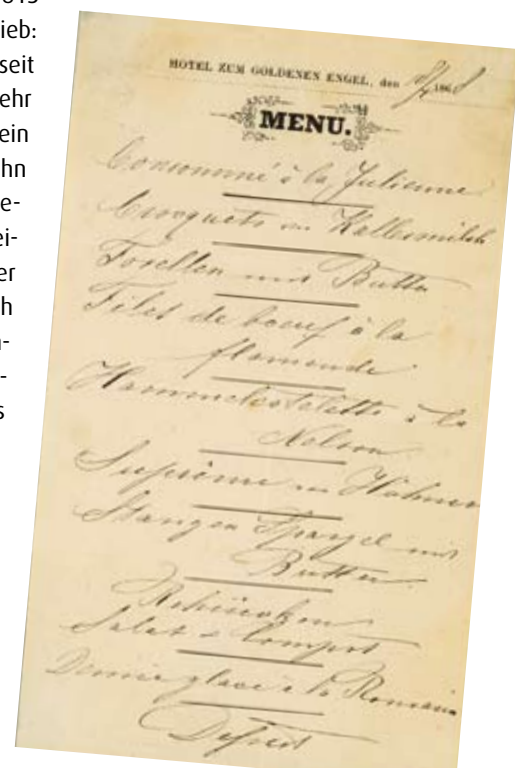 ieb:
seit
ehr
ein
hn
e-
ei-
er
h
-
s
HOTEL ZUM GOLDENEN ENGEL, den 1868
MENU.
Consommé à la Julienne
Croquets v. Kalbsmilch
Forellen mit Butter
Filet de boeuf à la
flamande
Hammelcotelette à la
Nelson
Suprème v. Hühner
Stangen Spargel mit
Butter
Rehrücken
Salat & Compot
glace à la Romaine
Dessert